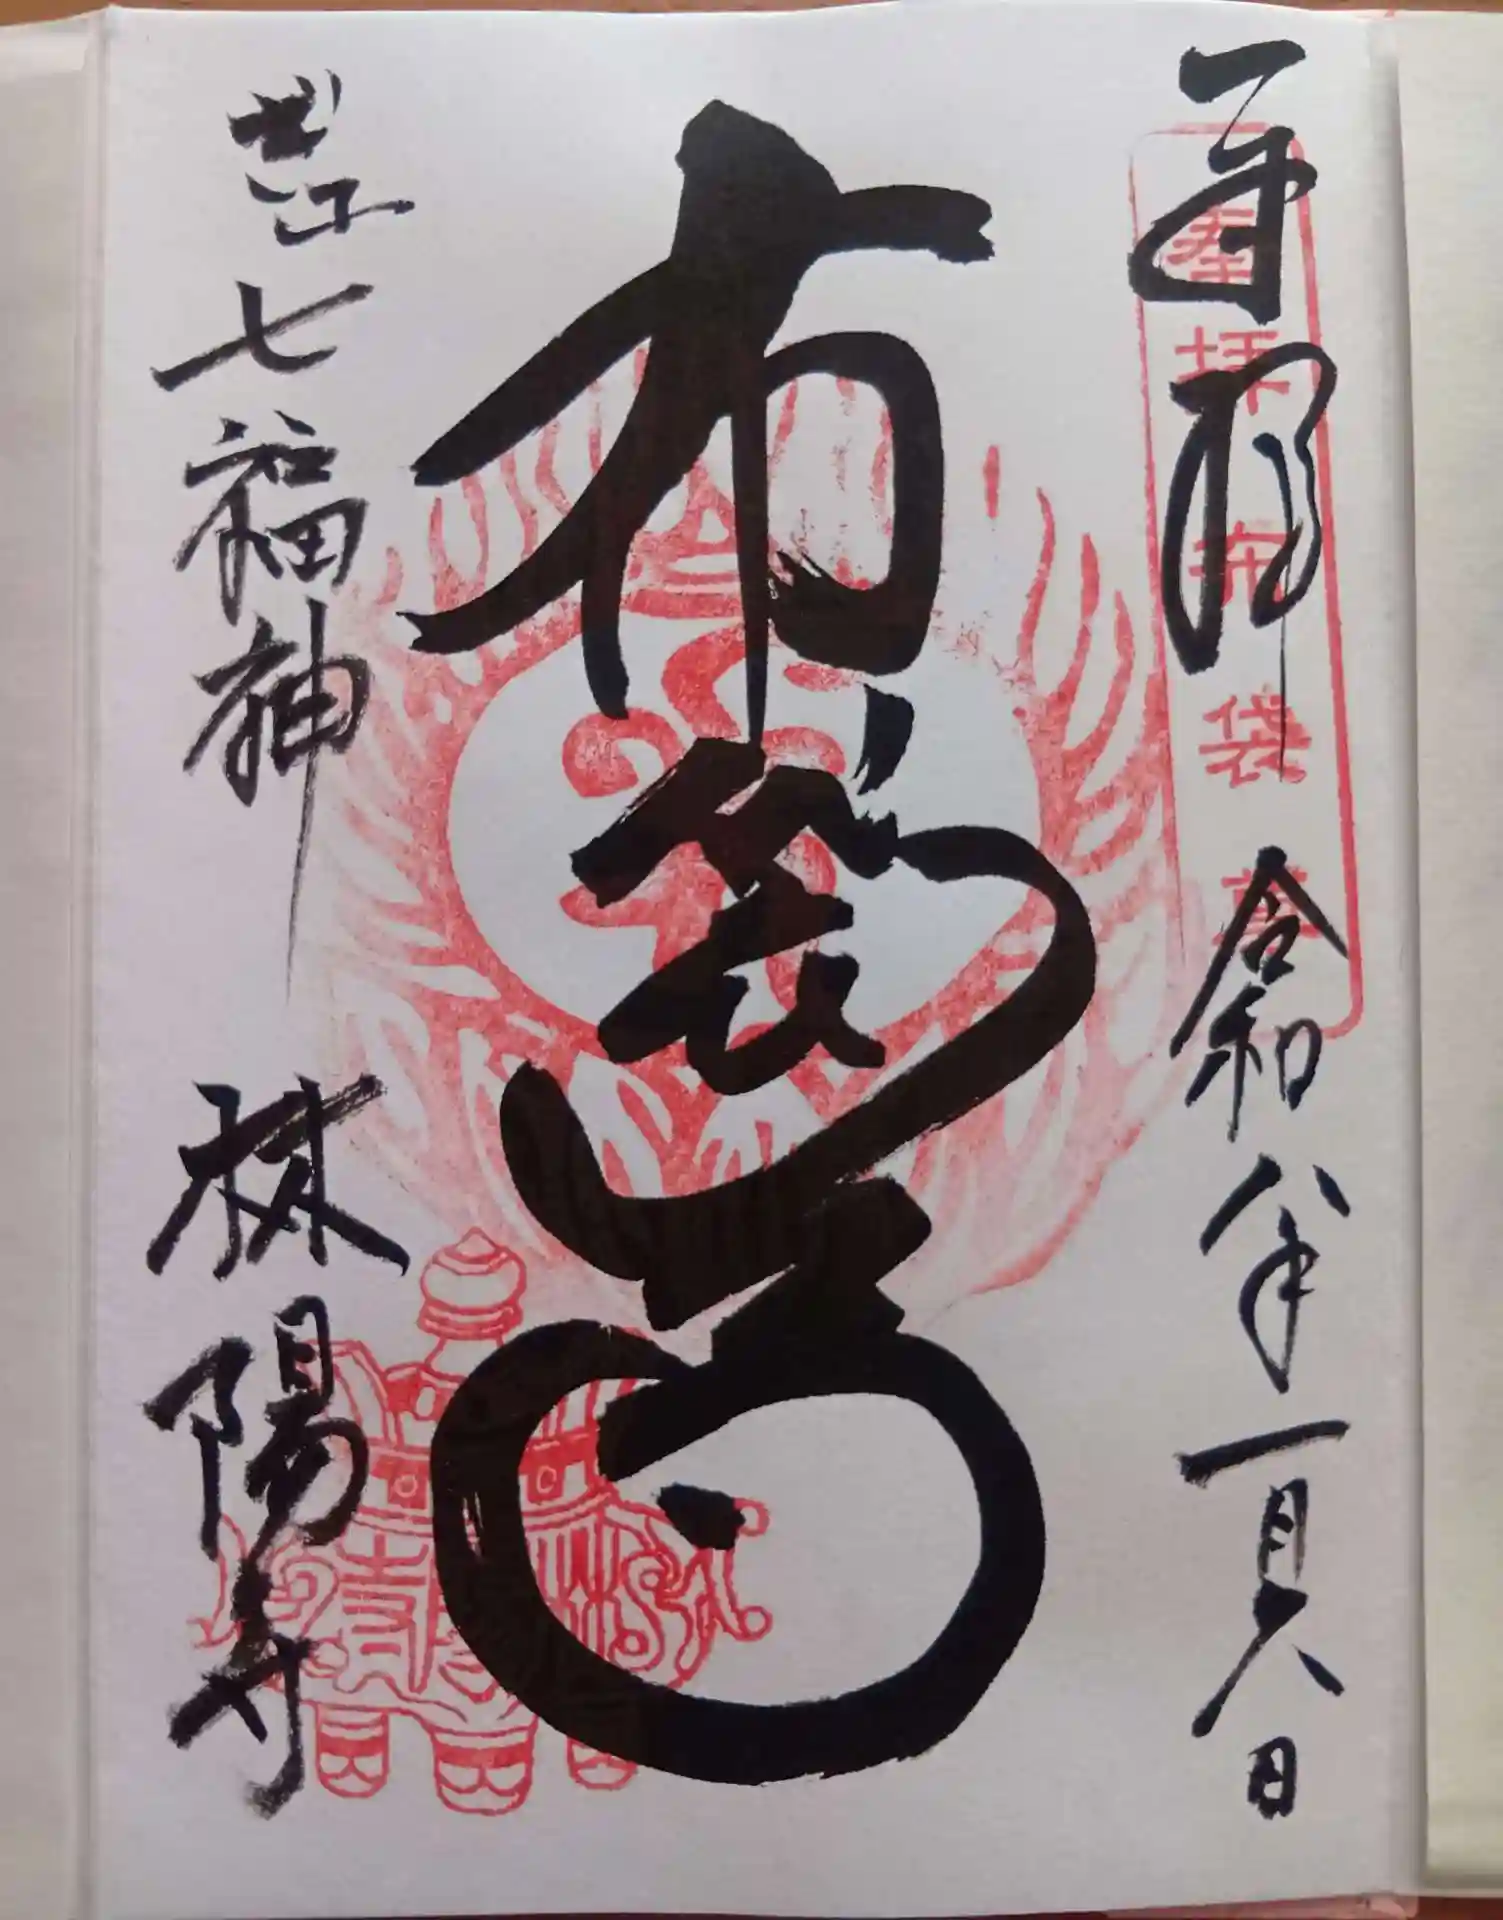 奉拝 令和八年一月六日
奉拝布袋尊
布袋尊
ぎふ七福神 林陽寺